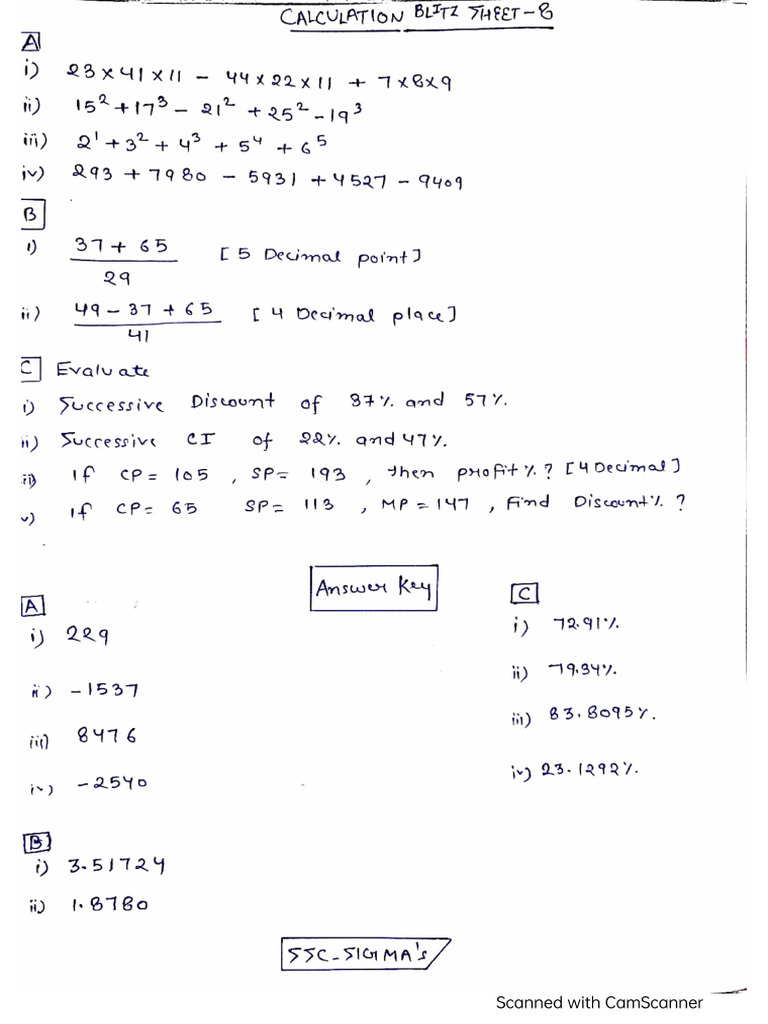 CALCULATION BLITZ SHEET-8
A
i) 23 × 41 × 11 - 44 × 22 × 11 + 7 × 8 × 9
ii) 15² + 17³ - 21² + 25² - 19³
iii) 2¹ + 3² + 4³ + 5⁴ + 6⁵
iv) 293 + 7980 - 5931 + 4527 - 9409
B
i) 37 + 65 / 29 [5 Decimal point]
ii) 49 - 37 + 65 / 41 [4 Decimal place]
C Evaluate
i) Successive Discount of 37% and 57%.
ii) Successive CI of 22% and 47%.
iii) If CP = 105, SP = 193, then profit%? [4 Decimal]
v) If CP = 65 SP = 113, MP = 147, Find Discount%?
Answer Key
A
i) 229
ii) -1537
iii) 8476
iv) -2540
B
i) 3.51724
ii) 1.8780
C
i) 72.91%.
ii) 79.34%.
iii) 83.8095%.
iv) 23.1292%.
SSC-SIGMA's
Scanned with CamScanner